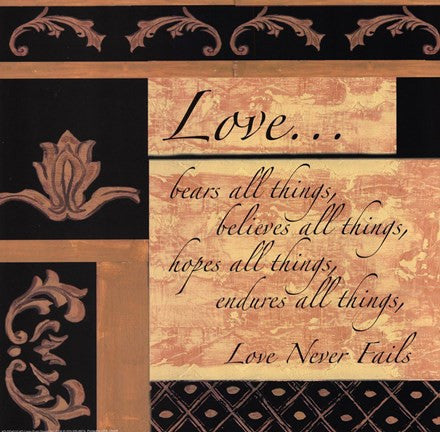 Love...
bears all things,
believes all things,
hopes all things,
endures all things,
Love Never Fails